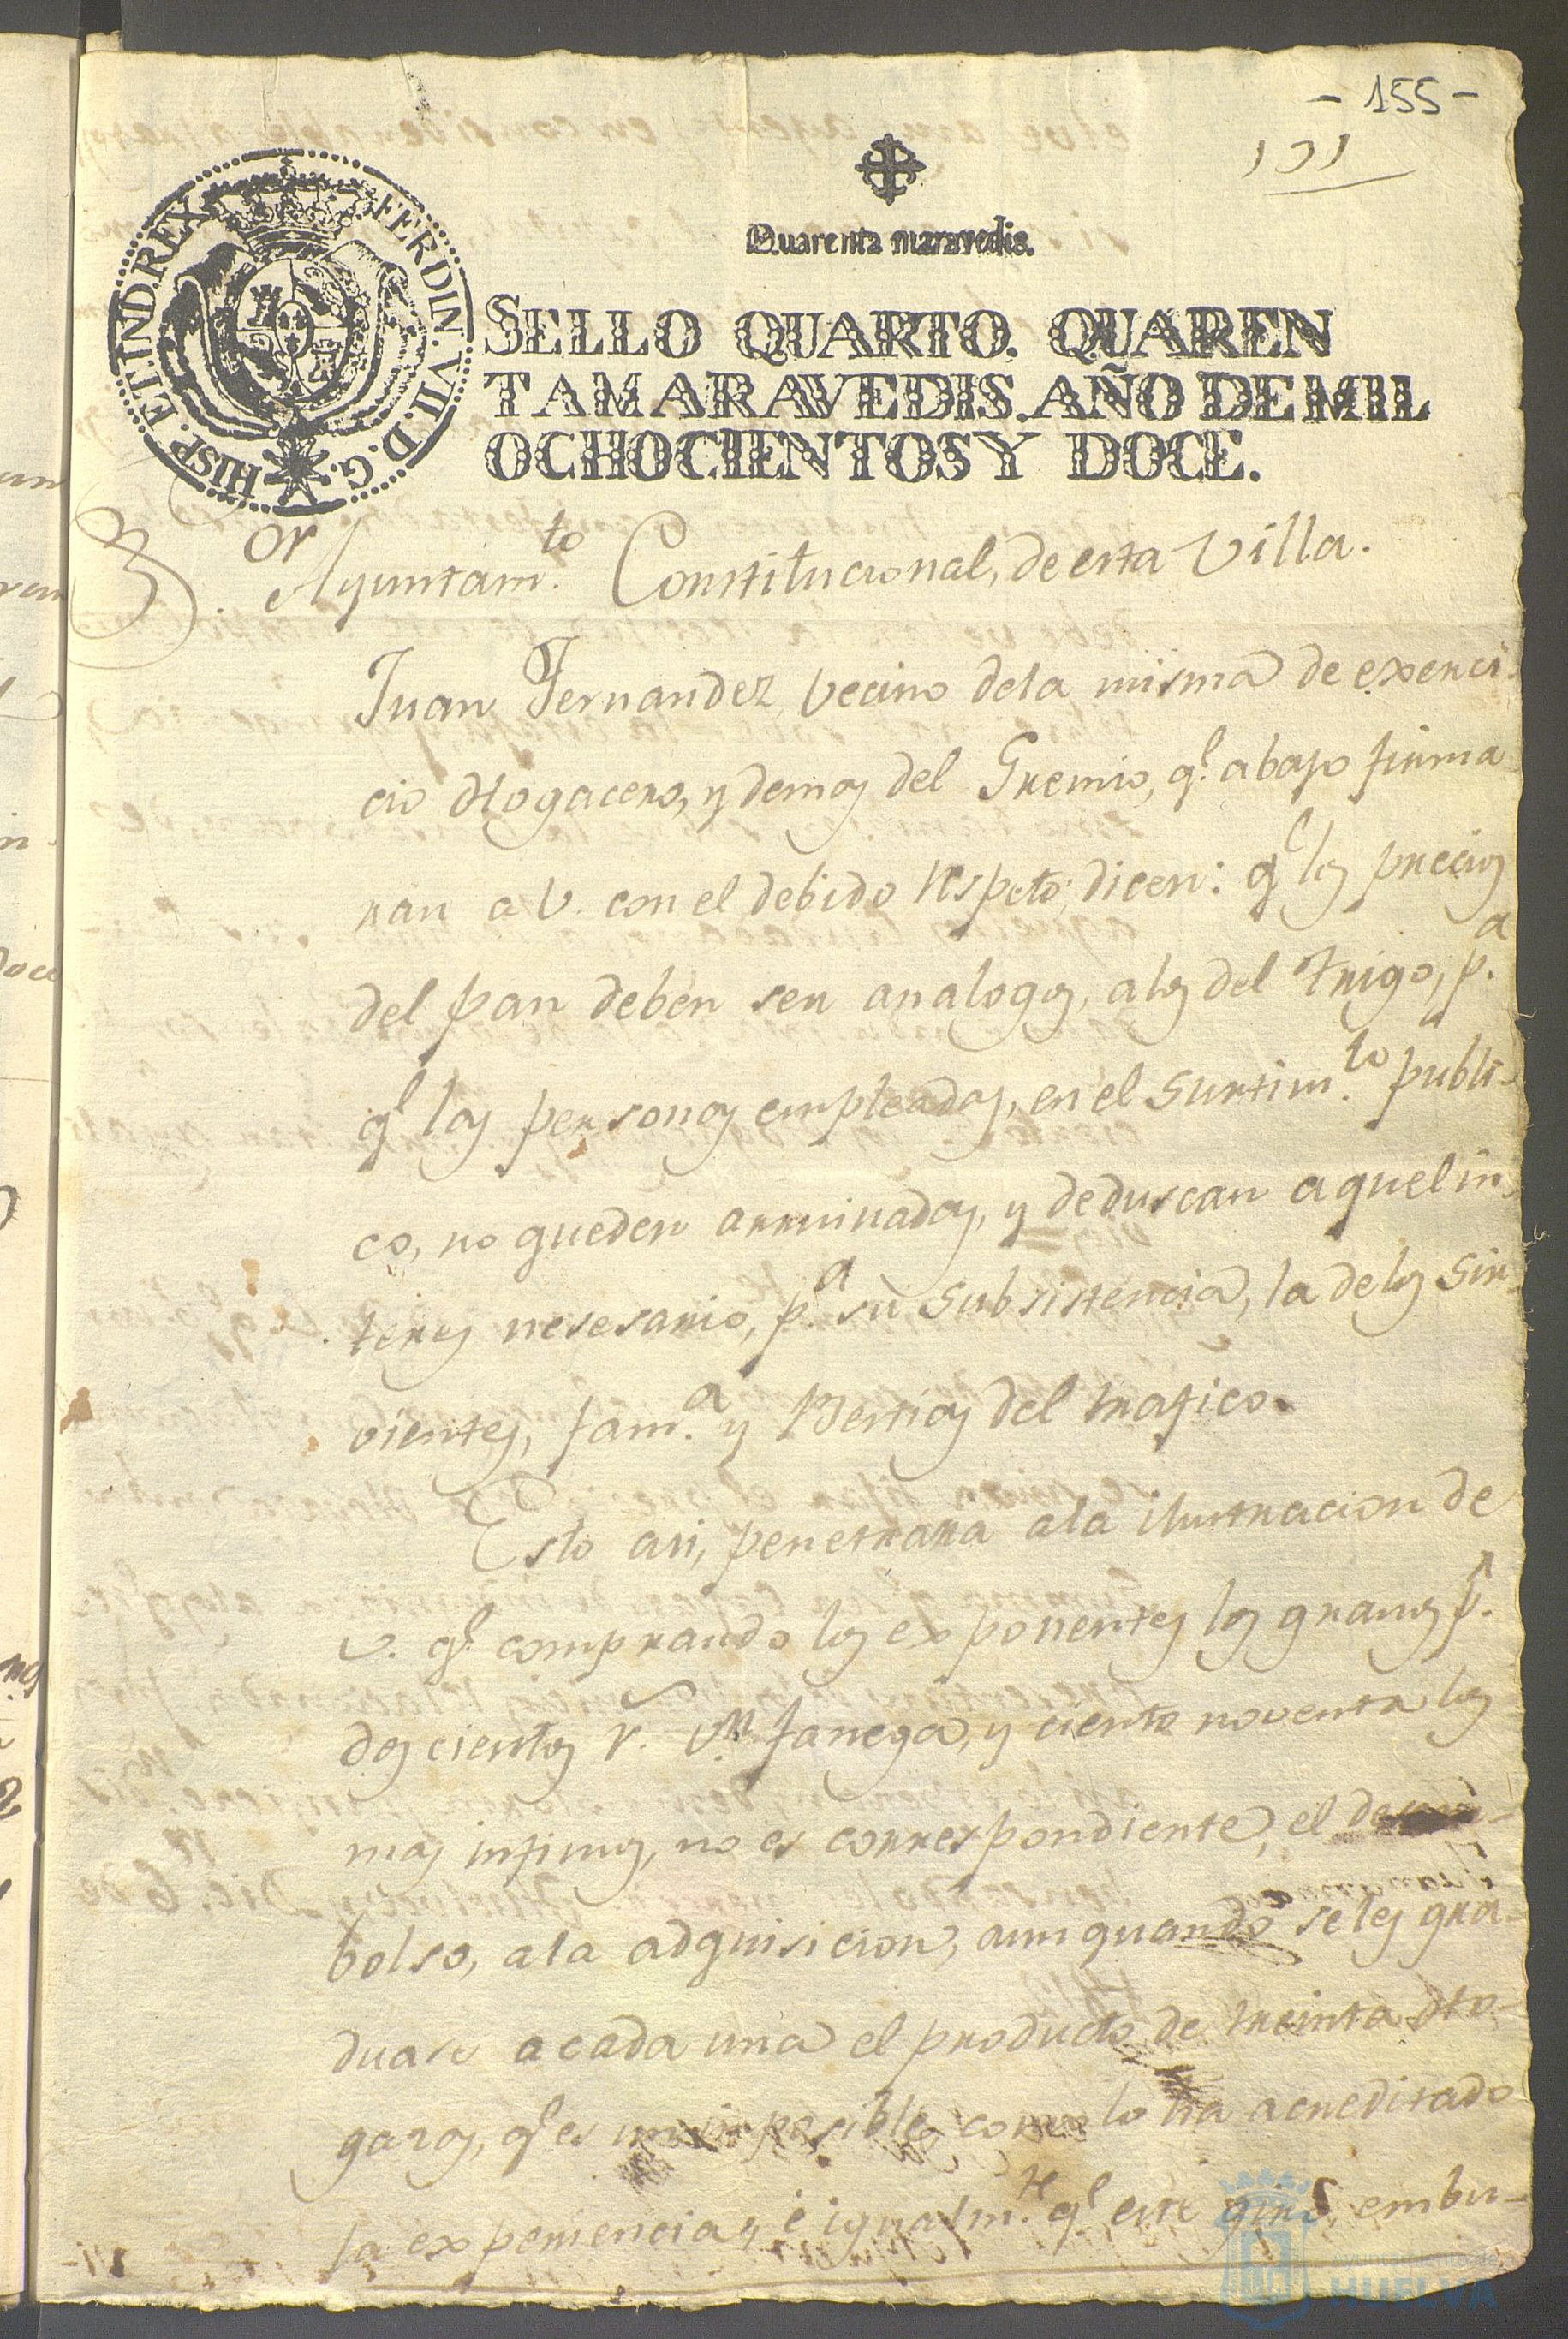 - 155 -
131
Quarenta maravedis.
HISP. ET IND. REX FERDIN. VII. D. G.
SELLO QUARTO. QUAREN
TA MARAVEDIS. AÑO DE MIL
OCHOCIENTOS Y DOCE.
or Ayuntam.to Constitucional, de esta Villa.
Juan Fernandez, vecino dela misma de exerci-
cio Hogacero, y demas del Gremio, q.e abajo firma
ran a V. con el debido respeto; dicen: q.e los precios
del pan deben ser analogos, alos del trigo, p.a
q.e las personas empleadas, en el surtim.to publi-
co, no queden arruinadas, y deduscan aquel in-
teres nesesario, p.a su subsistencia, la delos sir-
vientes, fam.a y Bestias del trafico.
Esto asi, penetrara ala ilustracion de
V. q.e comprando los exponentes los granos p.r
doscientos r. V.n fanega, y ciento noventa los
mas infimos, no es correspondiente, el desem-
bolso, ala adquisicion, aun quando seles gra-
duase acada una el producto de treinta Ho-
gazas, q.e es imposible, como lo ha acreditado
la experiencia, é igualm.te q.e este giro, embu-
Ayuntamiento de
HUELVA